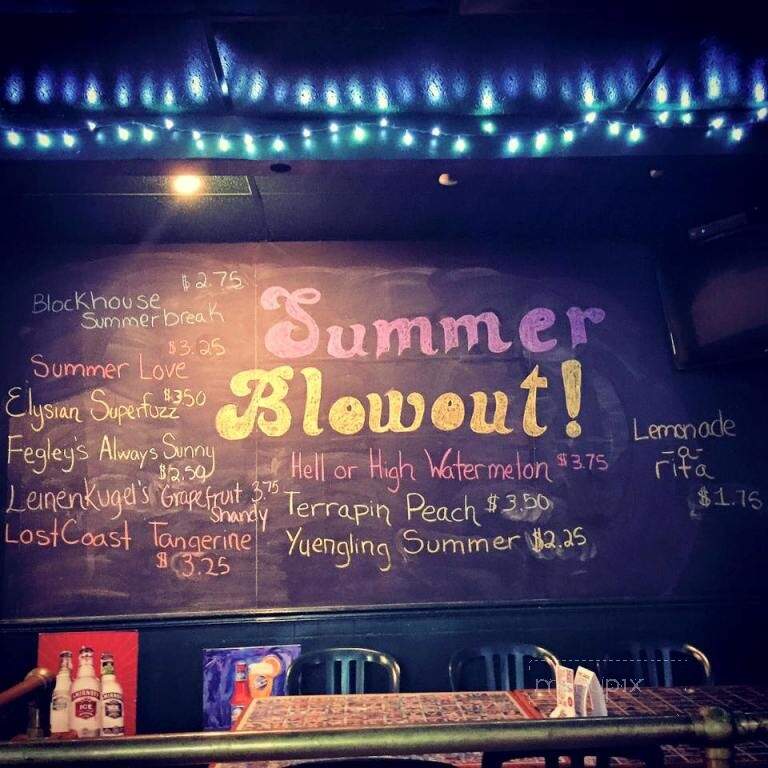 Summer
Blowout!
$2.75
Blockhouse
Summerbreak
$3.25
Summer Love
Elysian Superfuzz $3.50
Fegley's Always Sunny
$2.50
Leinenkugel's Grapefruit 3.75
Shandy
LostCoast Tangerine
$3.25
Hell or High Watermelon $3.75
Terrapin Peach $3.50
Yuengling Summer $2.25
Lemonade
-a-
rita
$1.75
SMIRNOFF
ICE